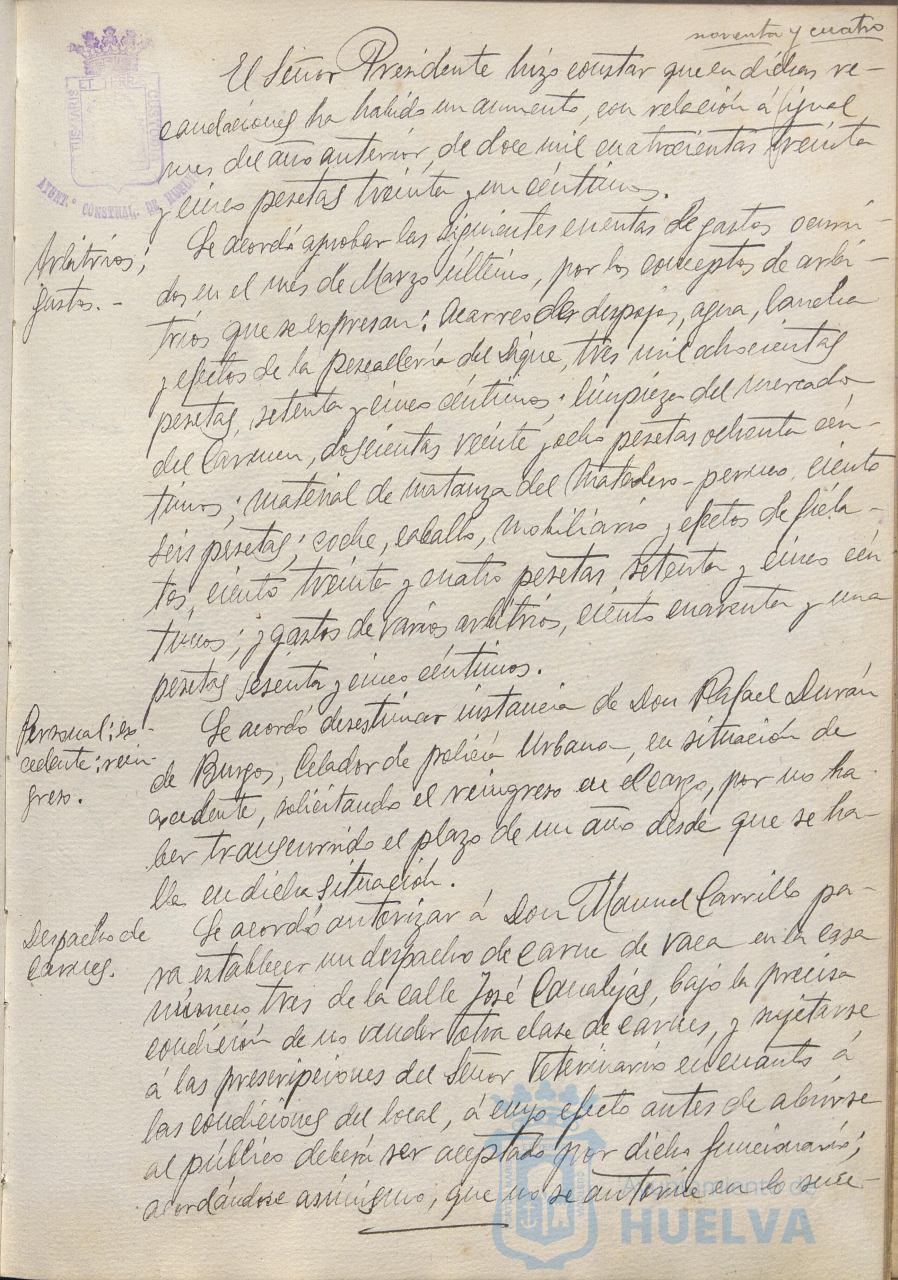 noventa y cuatro
El Señor Presidente hizo constar que en dichas re-
caudaciones ha habido un aumento, con relación á igual
mes del año anterior, de doce mil cuatrocientas treinta
y cinco pesetas treinta y un céntimos.
Arbitrios;
gastos.-
Se acordó aprobar las siguientes cuentas de gastos ocurri-
dos en el mes de Marzo último, por los conceptos de arbi-
trios que se expresan: Acarreo de despojos, agua, lancha
y efectos de la pescadería del Dique, tres mil ochocientas
pesetas, setenta y cinco céntimos; limpieza del mercado
del Carmen, doscientas veinte y ocho pesetas ochenta cén-
timos; material de matanza del Matadero- perruno, ciento
seis pesetas; coche, caballo, mobiliario y efectos de fiela-
tos, ciento treinta y cuatro pesetas, setenta y cinco cén
timos; y gastos de varios arbitrios, ciento cuarenta y una
pesetas sesenta y cinco céntimos.
Personal; ex-
cedente; rein-
greso.
Se acordó desestimar instancia de Don Rafael Durán
de Burgos, Celador de policía Urbana, en situación de
excedente, solicitando el reingreso en el cargo, por no ha-
ber transcurrido el plazo de un año desde que se ha-
lla en dicha situación.
Despacho de
Carnes.
Se acordó autorizar á Don Manuel Carrillo pa-
ra establecer un despacho de carne de vaca en la casa
número tres de la calle José Canalejas, bajo la precisa
condición de no vender otra clase de carnes, y sujetarse
á las prescripciones del Señor Veterinario en cuanto á
las condiciones del local, á cuyo efecto antes de abrirse
al público deberá ser aceptado por dicho funcionario;
acordándose asimismo, que no se autorice en lo suce-
AYUNT.º CONSTNAL. DE HUELVA
Ayuntamiento de
HUELVA